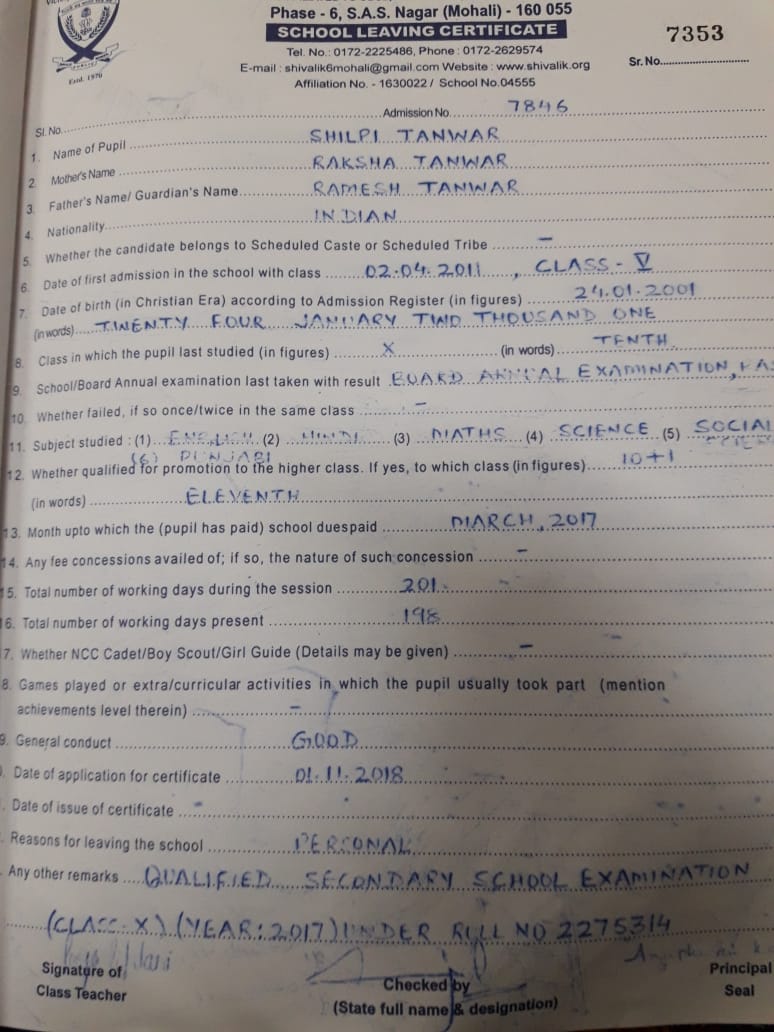 Estd. 1970
Phase - 6, S.A.S. Nagar (Mohali) - 160 055
SCHOOL LEAVING CERTIFICATE
Tel. No.: 0172-2225486, Phone : 0172-2629574
E-mail : shivalik6mohali@gmail.com Website : www.shivalik.org
Affiliation No. - 1630022 / School No.04555
7353
Sr. No.
Sl. No. Admission No. 7846
1. Name of Pupil SHILPI TANWAR
2. Mother's Name RAKSHA TANWAR
3. Father's Name/ Guardian's Name RAMESH TANWAR
4. Nationality INDIAN
5. Whether the candidate belongs to Scheduled Caste or Scheduled Tribe –
6. Date of first admission in the school with class 02.04.2011, CLASS - V
7. Date of birth (in Christian Era) according to Admission Register (in figures) 24.01.2001
(in words) TWENTY FOUR JANUARY TWO THOUSAND ONE
8. Class in which the pupil last studied (in figures) X (in words) TENTH
9. School/Board Annual examination last taken with result BOARD ANNUAL EXAMINATION,
10. Whether failed, if so once/twice in the same class –
11. Subject studied : (1) ENGLISH (2) HINDI (3) MATHS (4) SCIENCE (5) SOCIAL
(6) PUNJABI
12. Whether qualified for promotion to the higher class. If yes, to which class (in figures) 10+1
(in words) ELEVENTH
13. Month upto which the (pupil has paid) school duespaid MARCH, 2017
14. Any fee concessions availed of; if so, the nature of such concession –
5. Total number of working days during the session 201
6. Total number of working days present 198
7. Whether NCC Cadet/Boy Scout/Girl Guide (Details may be given) –
8. Games played or extra/curricular activities in which the pupil usually took part (mention
achievements level therein) –
9. General conduct GOOD
. Date of application for certificate 01.11.2018
. Date of issue of certificate
. Reasons for leaving the school PERSONAL
. Any other remarks QUALIFIED SECONDARY SCHOOL EXAMINATION
(CLASS-X) (YEAR:2017) UNDER ROLL NO 2275314
Signature of Checked by Principal
Class Teacher (State full name & designation) Seal